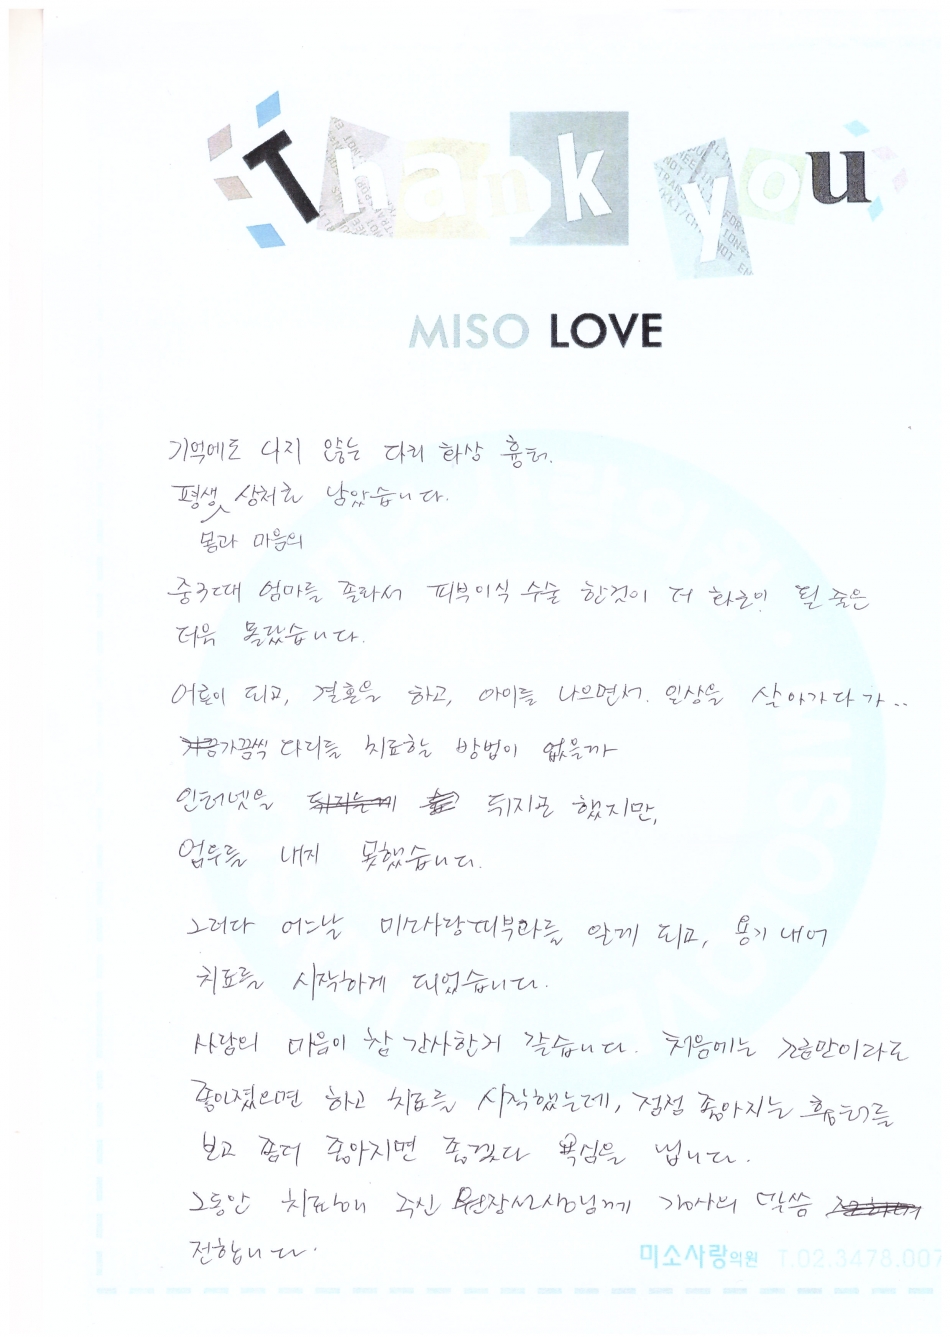 Thank you
MISO LOVE
기억에도 나지 않는 다리 화상 흉터.
평생 상처로 남았습니다.
몸과 마음의
중3때 엄마를 졸라서 피부이식 수술 한것이 더 화근이 될 줄은
더욱 몰랐습니다.
어른이 되고, 결혼을 하고, 아이를 나으면서. 일상을 살아가다가..
가끔씩 다리를 치료할 방법이 없을까
인터넷을 뒤지곤 했지만,
엄두를 내지 못했습니다.
그러다 어느날 미소사랑피부과를 알게 되고, 용기 내어
치료를 시작하게 되었습니다.
사람의 마음이 참 간사한거 같습니다. 처음에는 조금만이라도
좋아졌으면 하고 치료를 시작했는데, 점점 좋아지는 흉터를
보고 좀더 좋아지면 좋겠다 욕심을 냅니다.
그동안 치료해 주신 원장선생님께 감사의 말씀
전합니다.
미소사랑의원 T.02.3478.007